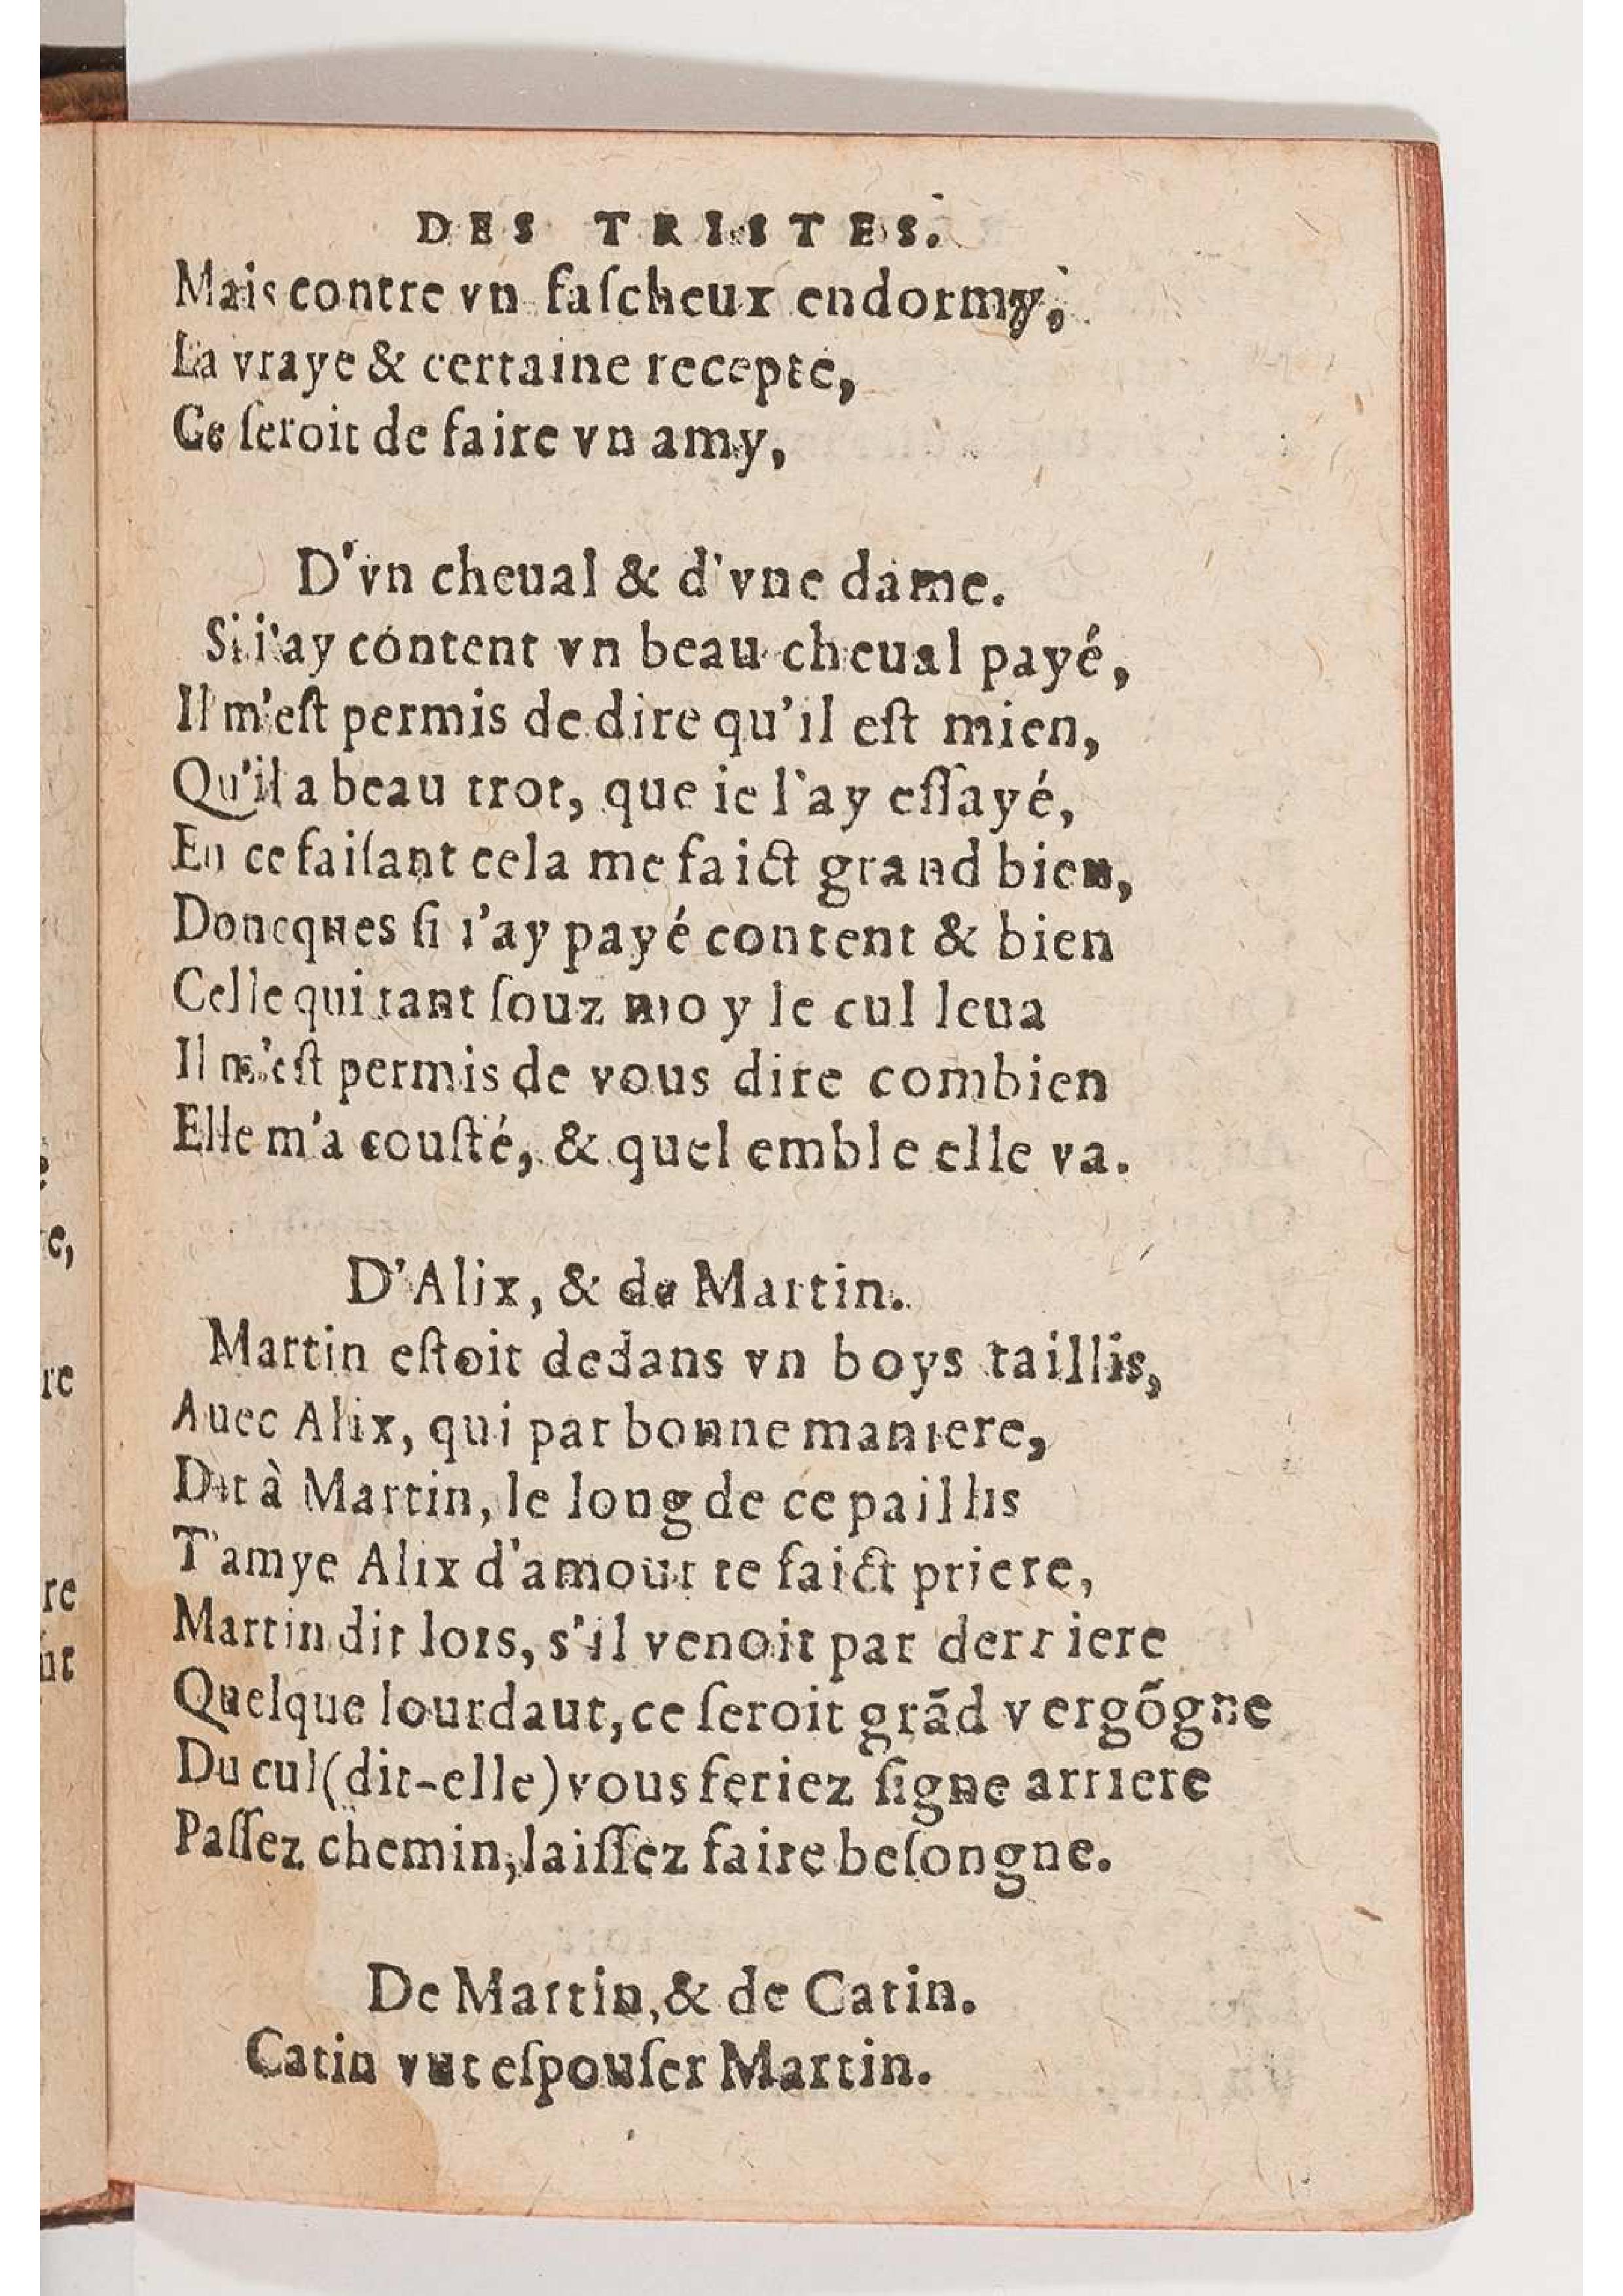 DES TRISTES.
Mais contre vn faſcheux endormy,
La vraye & certaine recepte,
Ce ſeroit de faire vn amy,
D'vn cheual & d'vne dame.
Si i'ay content vn beau cheual payé,
Il m'eſt permis de dire qu'il eſt mien,
Qu'il a beau trot, que ie l'ay eſſayé,
En ce faiſant cela me faict grand bien,
Doncques ſi i'ay payé content & bien
Celle qui tant ſouz moy le cul leua
Il m'eſt permis de vous dire combien
Elle m'a couſté, & quel emble elle va.
D'Alix, & de Martin.
Martin eſtoit dedans vn boys taillis,
Auec Alix, qui par bonne maniere,
Dit à Martin, le long de ce paillis
T'amye Alix d'amour te faict priere,
Martin dit lors, s'il venoit par derriere
Quelque lourdaut, ce ſeroit grãd vergõgne
Du cul (dit-elle) vous feriez ſigne arriere
Paſſez chemin, laiſſez faire beſongne.
De Martin, & de Catin.
Catin vut eſpouſer Martin.
e,
re
re
nt